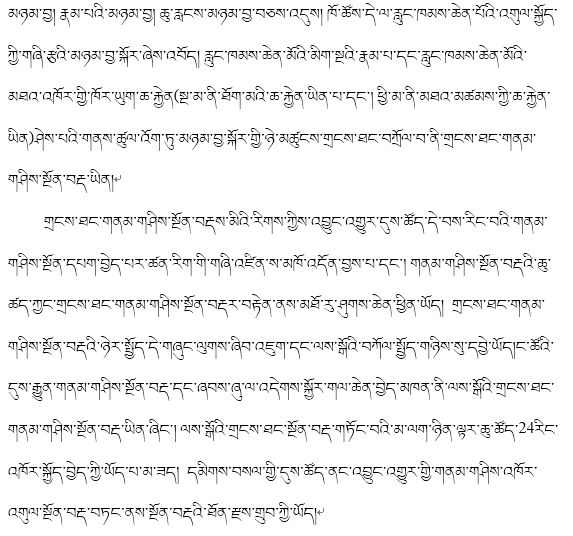 མཉམ་བྱ། རྣམ་པའི་མཉམ་བྱ། ཆུ་རླངས་མཉམ་བྱ་བཅས་འདུས། ཁོ་ཚོས་དེ་ལ་རླུང་ཁམས་ཆེན་པོའི་འགུལ་སྐྱོད་
ཀྱི་གཞི་རྩའི་མཉམ་བྱ་སྐོར་ཞེས་འབོད། རླུང་ཁམས་ཆེན་མོའི་མིག་སྔའི་རྣམ་པ་དང་རླུང་ཁམས་ཆེན་མོའི་
མཐའ་འཁོར་གྱི་ཁོར་ཡུག་ཆ་རྐྱེན(སྔ་མ་ནི་ཐོག་མའི་ཆ་རྐྱེན་ཡིན་པ་དང་། ཕྱི་མ་ནི་མཐའ་མཚམས་ཀྱི་ཆ་རྐྱེན་
ཡིན)ཤེས་པའི་གནས་ཚུལ་འོག་ཏུ་མཉམ་བྱ་སྐོར་གྱི་ཉེ་མཚུངས་གྲངས་ཐང་བཀྲོལ་བ་ནི་གྲངས་ཐང་གནམ་
གཤིས་སྔོན་བརྡ་ཡིན།
གྲངས་ཐང་གནམ་གཤིས་སྔོན་བརྡས་མིའི་རིགས་ཀྱིས་འབྱུང་འགྱུར་དུས་ཚོད་དེ་བས་རིང་བའི་གནམ་
གཤིས་སྔོན་དཔག་བྱེད་པར་ཚན་རིག་གི་གཞི་འཛིན་ས་མཁོ་འདོན་བྱས་པ་དང་། གནམ་གཤིས་སྔོན་བརྡའི་ཆུ་
ཚད་ཀྱང་གྲངས་ཐང་གནམ་གཤིས་སྔོན་བརྡར་བརྟེན་ནས་མཐོ་རུ་ཤུགས་ཆེན་ཕྱིན་ཡོད། གྲངས་ཐང་གནམ་
གཤིས་སྔོན་བརྡའི་ཉེར་སྤྱོད་དེ་གཞུང་ལུགས་ཞིབ་འཇུག་དང་ལས་སྒོའི་བཀོལ་སྤྱོད་གཉིས་སུ་དབྱེ་ཡོད།ང་ཚོའི་
དུས་རྒྱུན་གནམ་གཤིས་སྔོན་བརྡ་དང་ཞབས་ཞུ་ལ་འདེགས་སྐྱོར་གལ་ཆེན་བྱེད་མཁན་ནི་ལས་སྒོའི་གྲངས་ཐང་
གནམ་གཤིས་སྔོན་བརྡ་ཡིན་ཞིང་། ལས་སྒོའི་གྲངས་ཐང་སྔོན་བརྡ་གཏོང་བའི་མ་ལག་ཉིན་ལྟར་ཆུ་ཚོད་24རིང་
འཁོར་སྐྱོད་བྱེད་ཀྱི་ཡོད་པ་མ་ཟད། དམིགས་བསལ་གྱི་དུས་ཚོད་ནང་འབྱུང་འགྱུར་གྱི་གནམ་གཤིས་འཁོར་
འགུལ་སྔོན་བརྡ་བཏང་ནས་སྔོན་བརྡའི་ཐོན་རྫས་གྲུབ་ཀྱི་ཡོད།